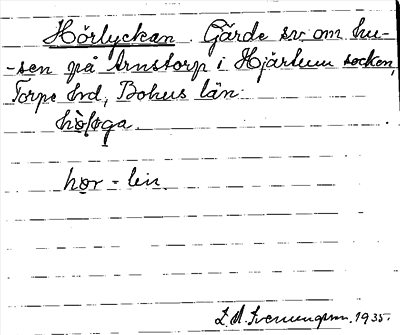 Hörlyckan. Gärde sv om hu-
-sen på Arnstorp i Hjärtum socken,
Torpe hrd, Bohus län.
hor - lin
1935.